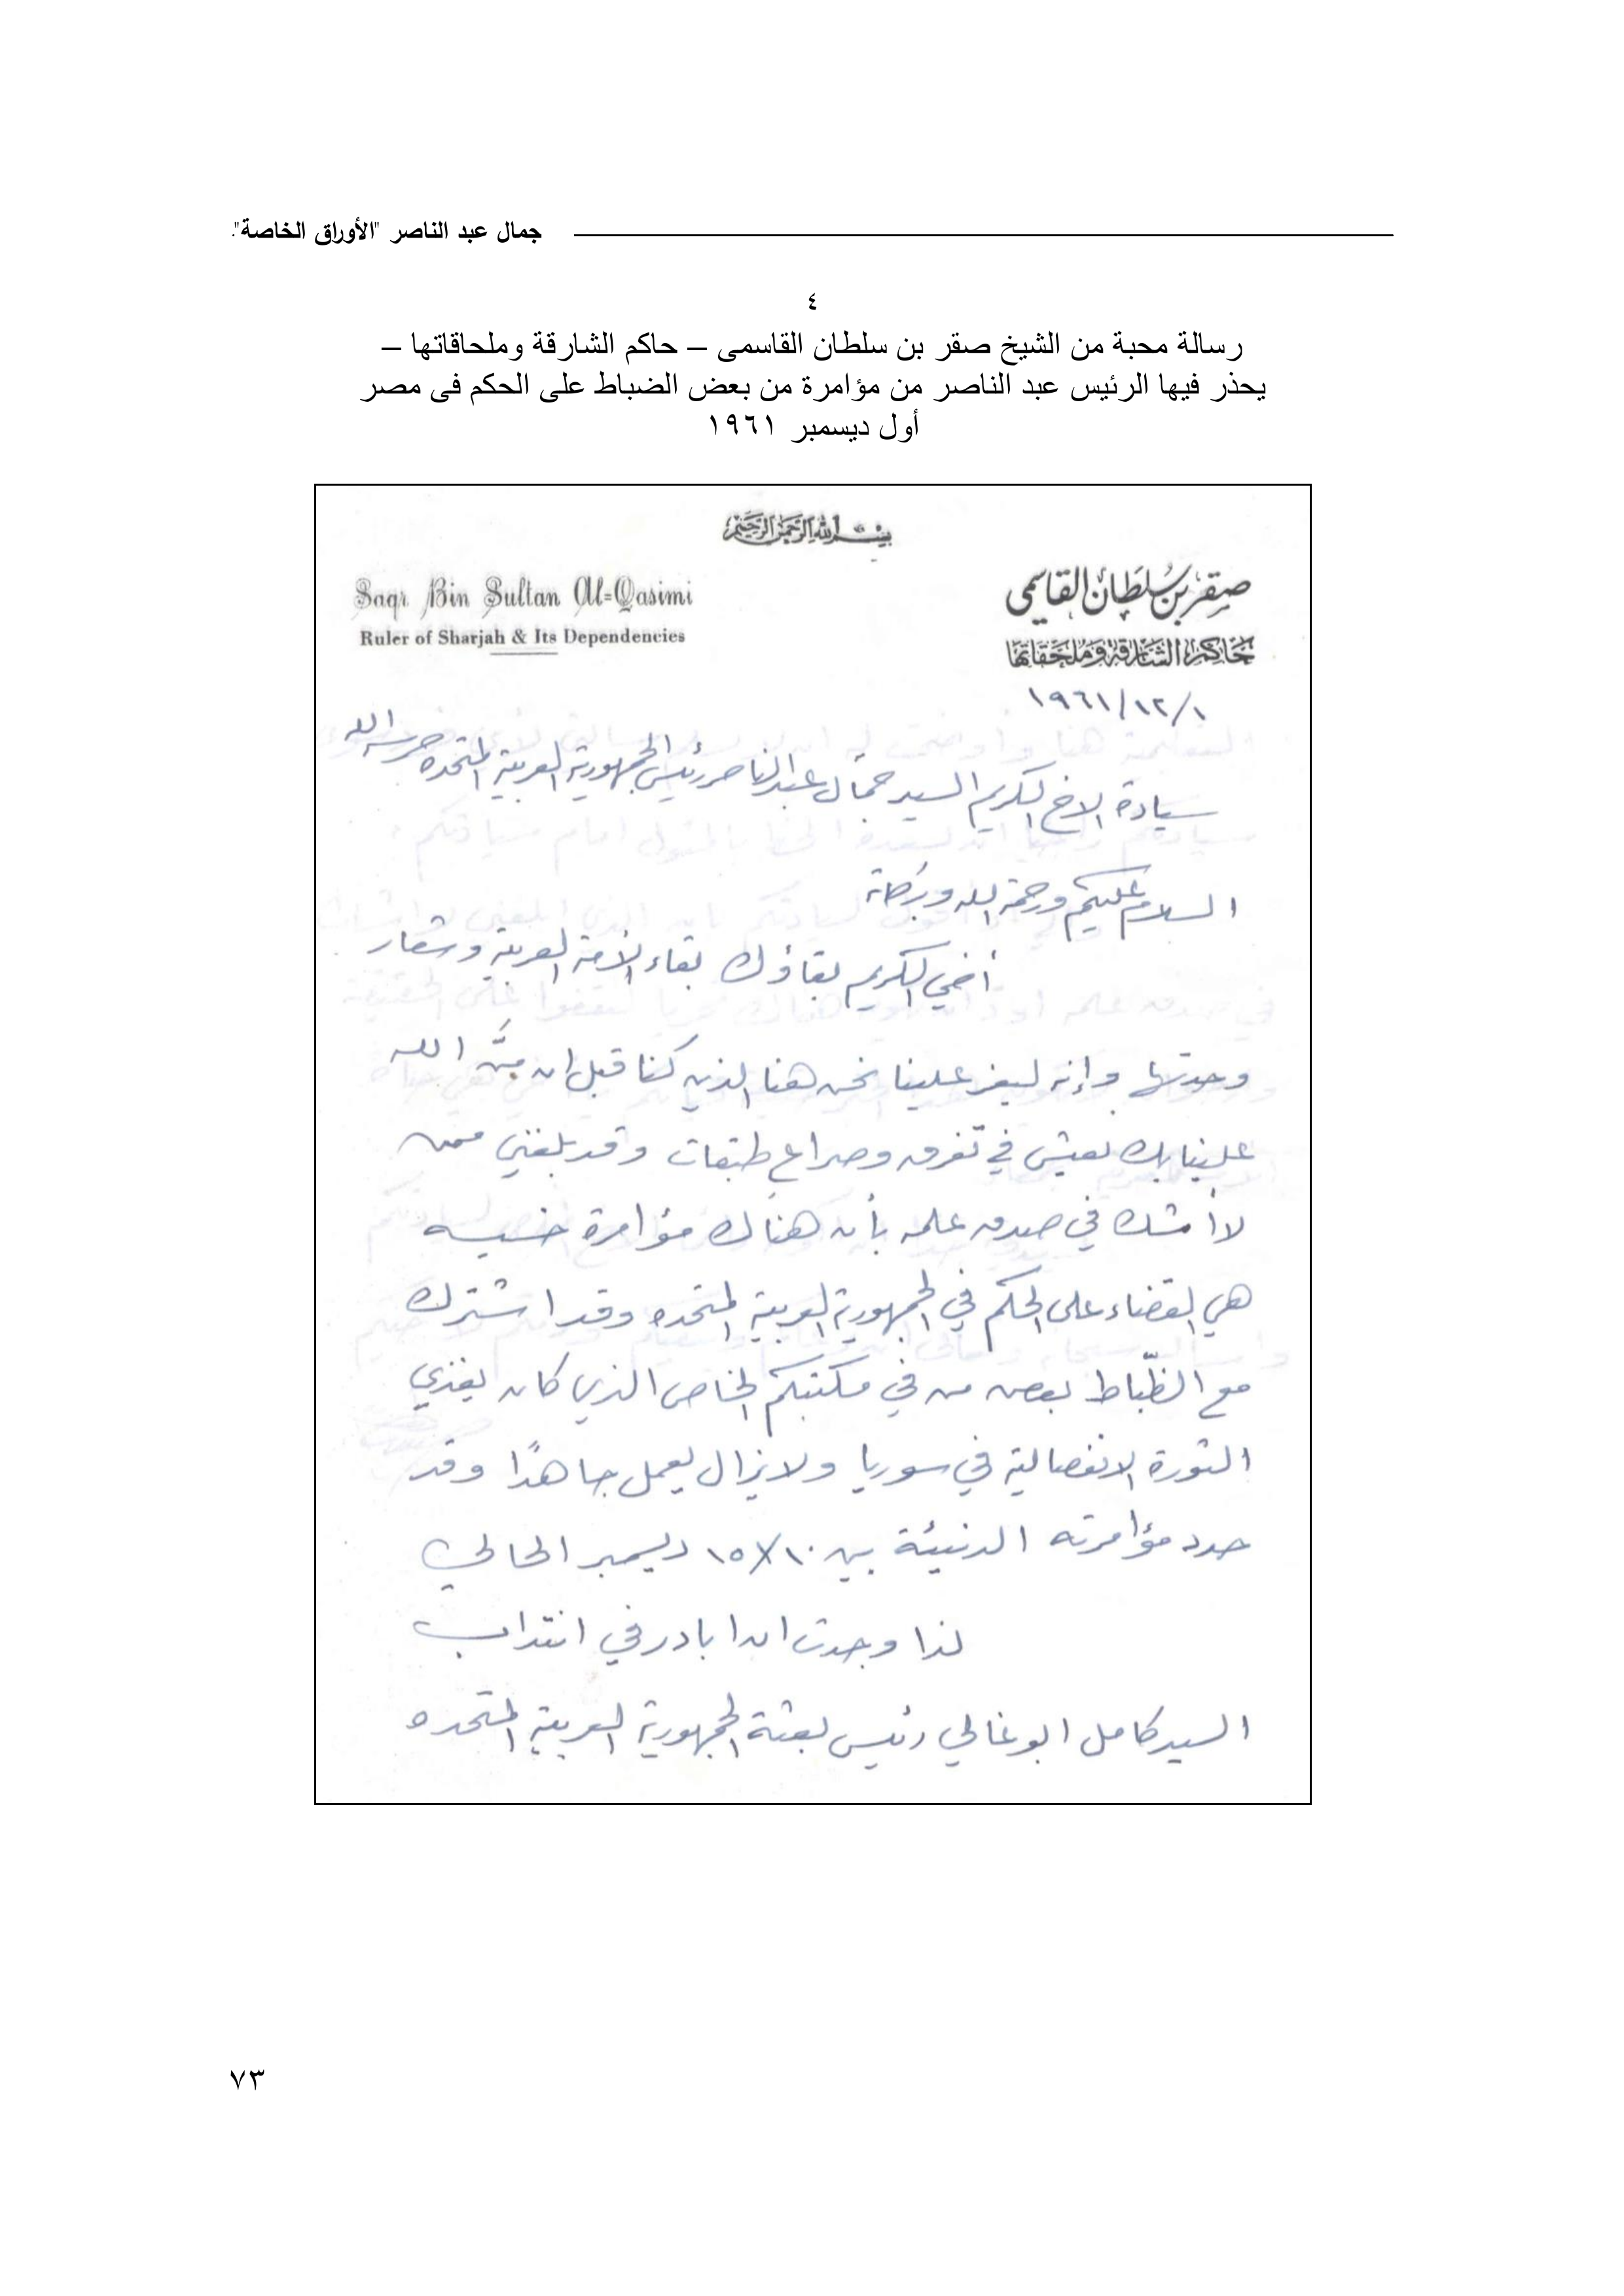 جمال عبد الناصر "الأوراق الخاصة".
٤
رسالة محبة من الشيخ صقر بن سلطان القاسمى – حاكم الشارقة وملحاقاتها –
يحذر فيها الرئيس عبد الناصر من مؤامرة من بعض الضباط على الحكم فى مصر
أول ديسمبر ١٩٦١
بسم الله الرحمن الرحيم
صقر بن سلطان القاسمي
Saqr Bin Sultan Al-Qasimi
حاكم الشارقة وملحقاتها
Ruler of Sharjah & Its Dependencies
١٩٦١/١٢/١
سيادة الاخ الكريم السيد جمال عبد الناصر رئيس الجمهورية العربية المتحده حرسه الله
السلام عليكم ورحمة الله وبركاته
أخي الكريم بقاؤك بقاء الأمة العربية وشعار
وحدتها وإنه ليعز علينا نحن هنا الذين كنا قبل ان يمنَّ الله
علينا بك نعيش في تفرق وصراع طبقات وقد بلغني ممن
لا أشك في صدق علمه بأن هناك مؤامرة خسيسه
هي القضاء على الحكم في الجمهورية العربية المتحده وقد اشترك
مع الظّباط بعض من في مكتبكم الخاص الذي كان يغذي
الثورة الانفصالية في سوريا ولا يزال يعمل جاهدًا وقد
حدد مؤامرته الدنيئة بين ١٠/١٥ ديسمبر الحالي
لذا وجدت ان ابادر في انتداب
السيد كامل ابو غالي رئيس بعثة الجمهورية العربية المتحده
٧٣